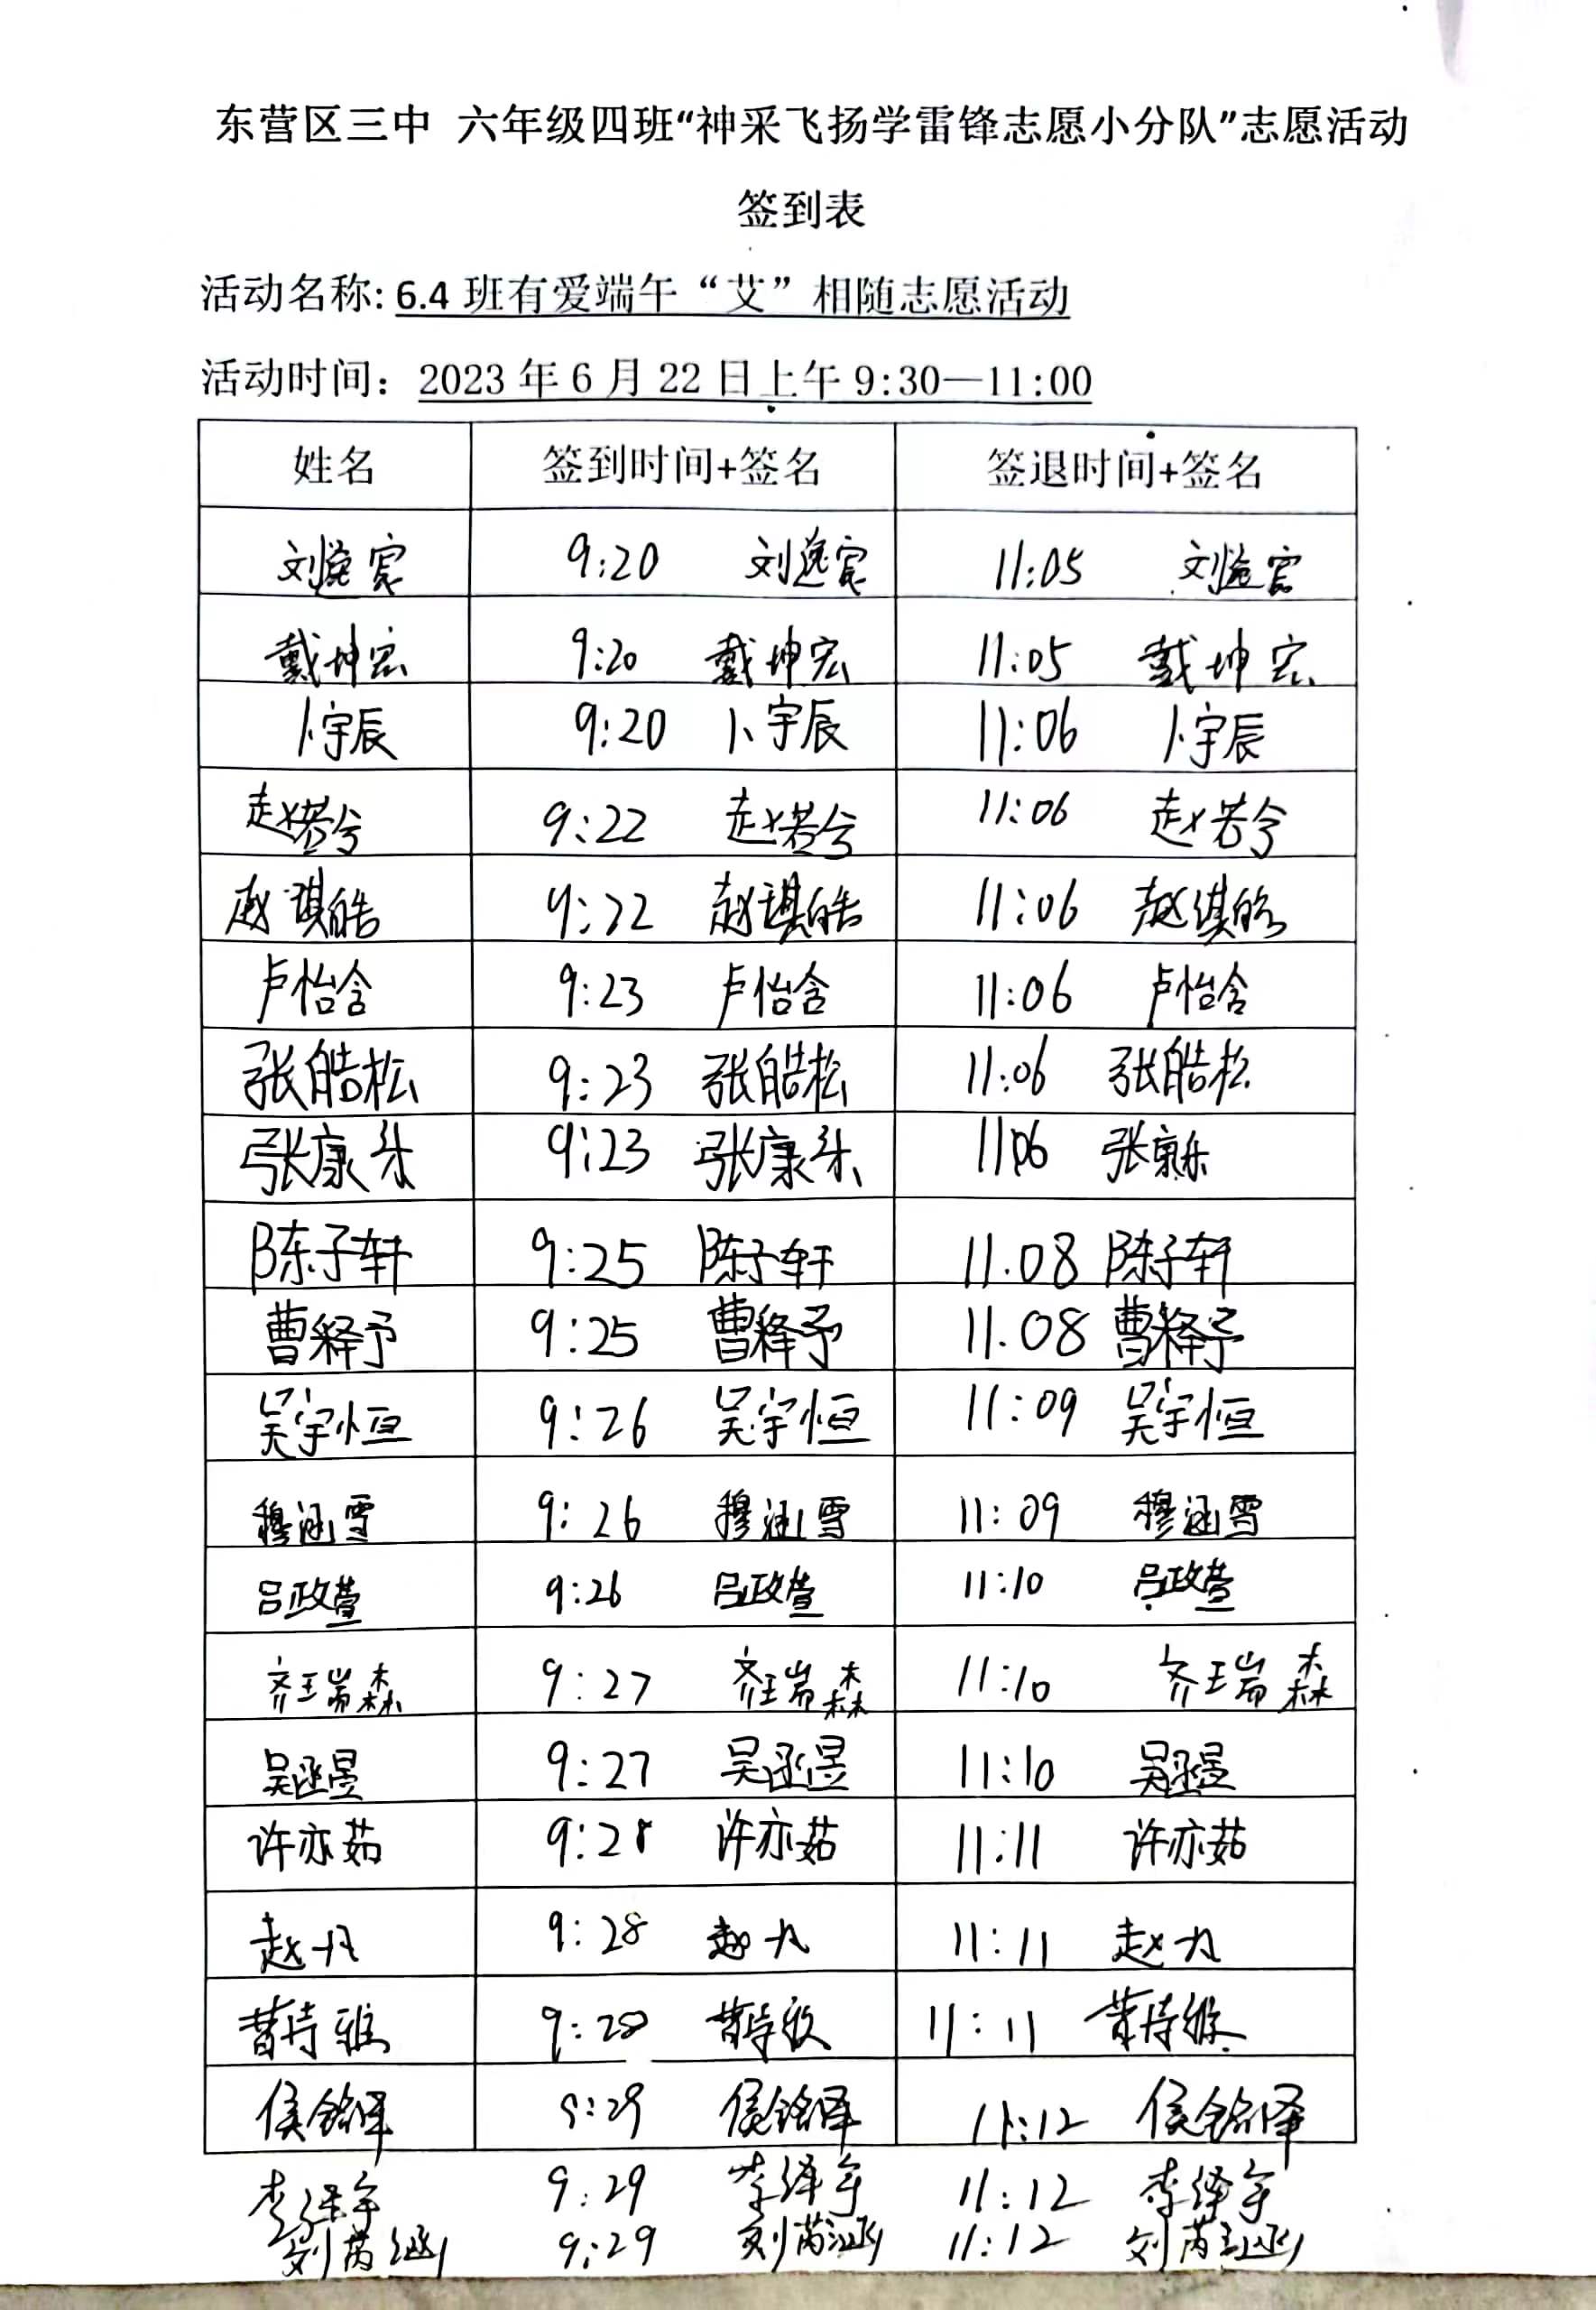 东营区三中 六年级四班“神采飞扬学雷锋志愿小分队”志愿活动
签到表
活动名称: 6.4 班有爱端午“艾”相随志愿活动
活动时间：2023 年 6 月 22 日上午 9:30—11:00
姓名 签到时间+签名 签退时间+签名
刘逸宸 9:20 刘逸宸 11:05 刘逸宸
戴坤宏 9:20 戴坤宏 11:05 戴坤宏
卜宇辰 9:20 卜宇辰 11:06 卜宇辰
赵若兮 9:22 赵若兮 11:06 赵若兮
赵祺皓 9:22 赵祺皓 11:06 赵祺皓
卢怡含 9:23 卢怡含 11:06 卢怡含
张皓松 9:23 张皓松 11:06 张皓松
张康乐 9:23 张康乐 11:06 张康乐
陈子轩 9:25 陈子轩 11.08 陈子轩
曹释予 9:25 曹释予 11.08 曹释予
吴宇恒 9:26 吴宇恒 11:09 吴宇恒
穆涵雪 9:26 穆涵雪 11:09 穆涵雪
吕政萱 9:26 吕政萱 11:10 吕政萱
齐瑞森 9:27 齐瑞森 11:10 齐瑞森
吴函昱 9:27 吴函昱 11:10 吴函昱
许亦茹 9:28 许亦茹 11:11 许亦茹
赵 9:28 赵 11:11 赵
9:28 11:11
侯铭泽 9:29 侯铭泽 11:12 侯铭泽
李泽宇 9:29 李泽宇 11:12 李泽宇
刘芮涵 9:29 刘芮涵 11:12 刘芮涵